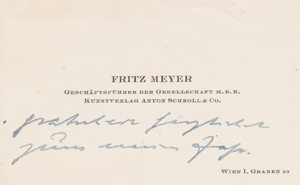 FRITZ MEYER
GESCHÄFTSFÜHRER DER GESELLSCHAFT M. B. H.
KUNSTVERLAG ANTON SCHROLL & CO.
gratuliert herzlichst
zum neuen Jahr.
WIEN I, GRABEN 29